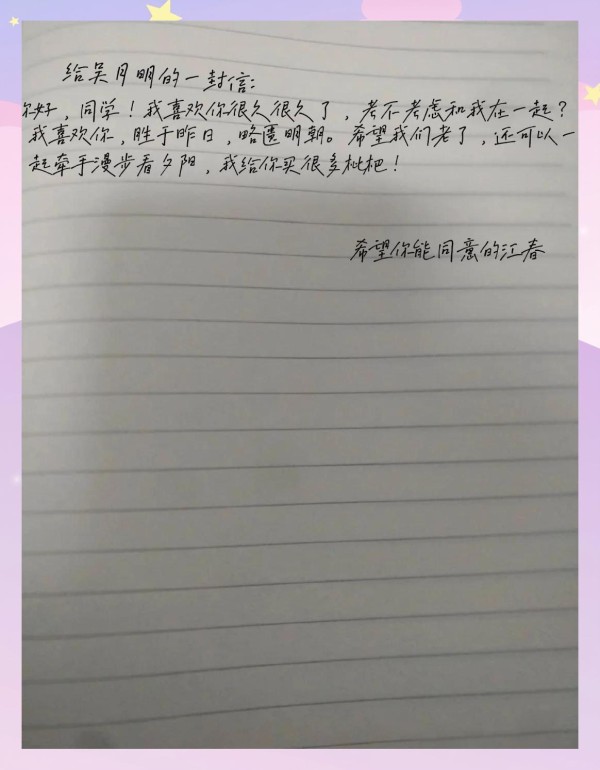 给吴月明的一封信:
你好，同学！我喜欢你很久很久了，考不考虑和我在一起？
我喜欢你，胜于昨日，略匿明朝。希望我们老了，还可以一
起牵手漫步看夕阳，我给你买很多枇杷！
希望你能同意的江春